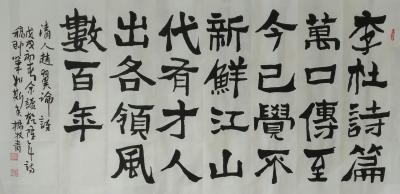 李杜詩篇
萬口傳至
今已覺不
新鮮江山
代有才人
出各領風
數百年
清人趙翼論詩